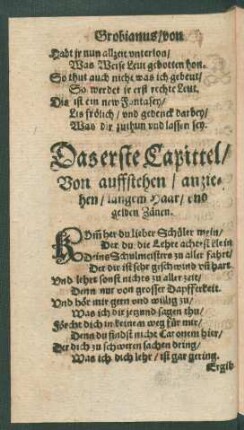 Grobianus/von
Habt jr nun allzeit vnterlon/
Was Weise Leut gebotten hon.
So thut auch nicht was ich gebeut/
So werdet jr erst rechte Leut.
Diß ist ein new Fantasey/
Lis frölich/ vnd gedenck darbey/
Was dir zuthun vnd lassen sey.
Das erste Capittel/
Von auffstehen/ anzie-
hen/ langem Haar/ vnd
gelben Zänen.
KOm̃ her du lieber Schüler mein/
Der du die Lehre achtest klein
Deins Schulmeisters zu aller fahrt/
Der dir ist sehr geschwind vñ hart
Vnd lehrt sonst nichts zu aller zeit/
Denn nur von grosser Dapfferkeit.
Vnd hör mir gern vnd willig zu/
Was ich dir jetzund sagen thu/
Förcht dich in keinem weg für mir/
Denn du findst nicht Catonem hier/
Der dich zu schweren sachen dring/
Was ich dich lehr/ ist gar gering.
Ergib